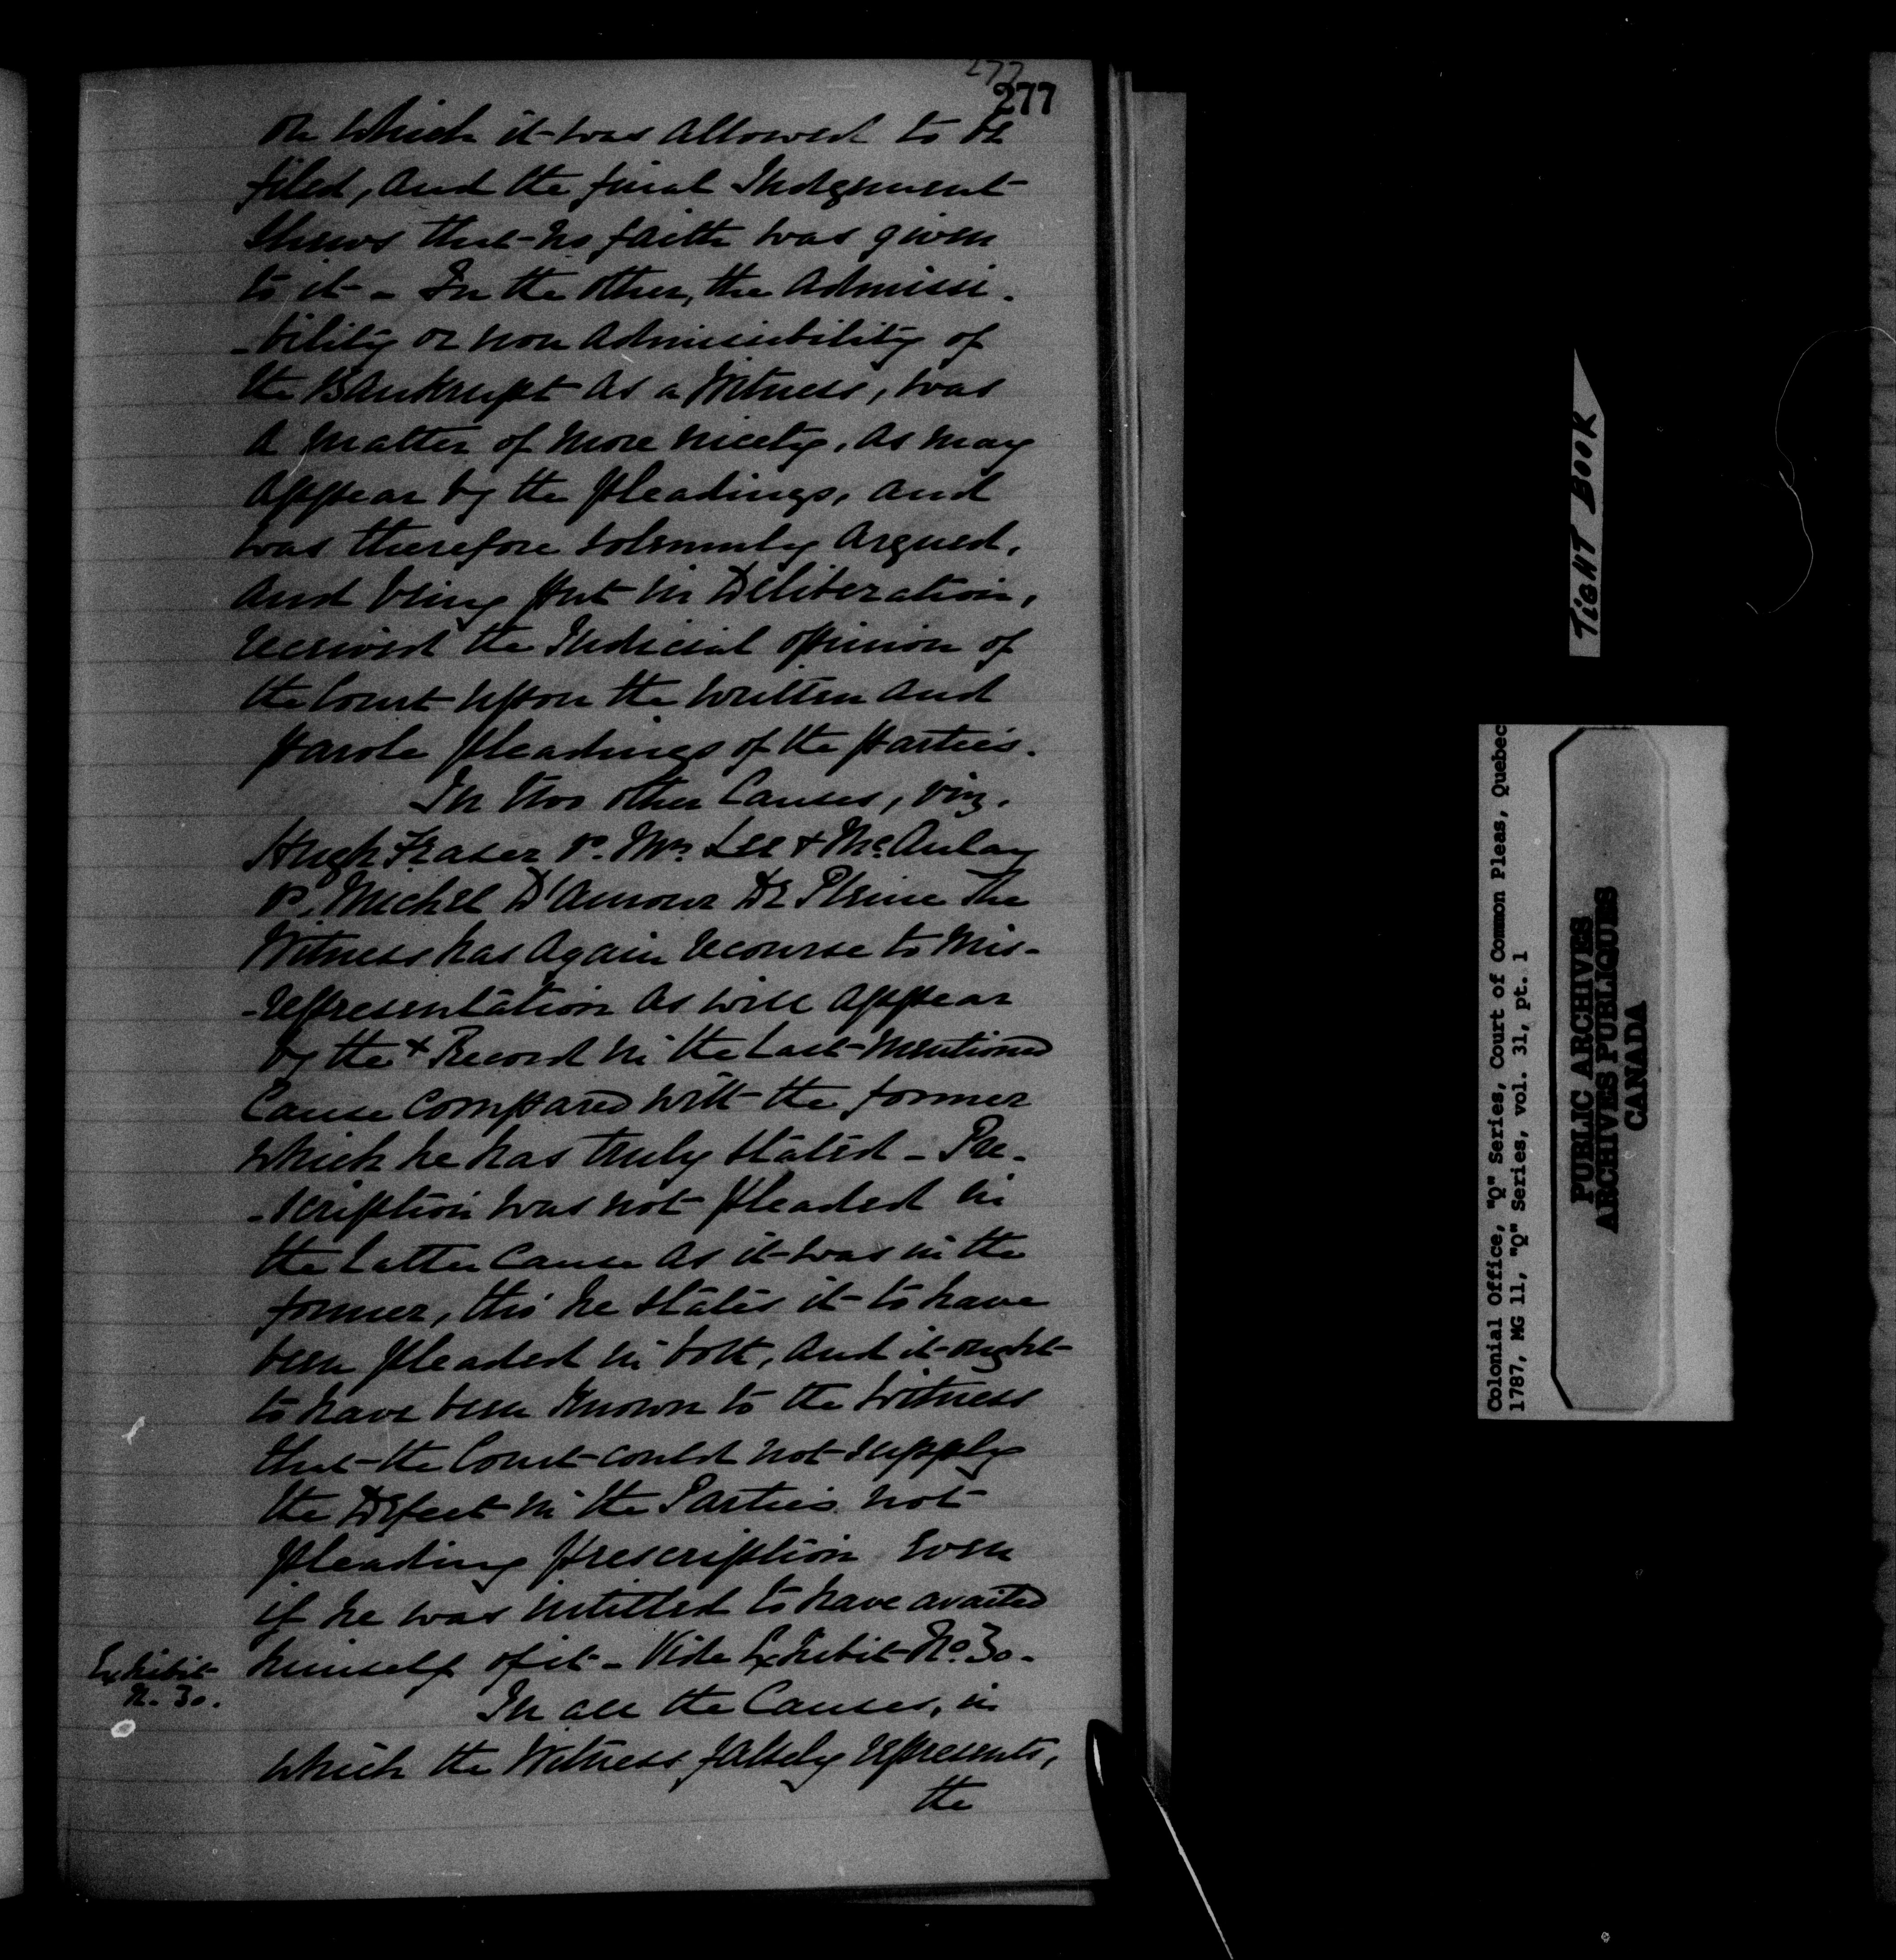 277
277
on which it was allowed to be
filed, and the final Judgement
shews that no faith was given
to it - In the other, the Admissi-
-bility or non Admissibility of
the Bankrupt as a Witness, was
a matter of more nicety, as may
appear by the pleadings, and
was therefore solemnly argued,
and being put in Deliberation,
received the Judicial opinion of
the Court upon the written and
parole pleadings of the parties.
In two other Causes, viz.
Hugh Fraser v. Mr. Lee & McAulay
v. Michel D'amour De Pleine The
Witness has again recourse to Mis-
-representation as will appear
by the + Record in the Last-mentioned
Cause compared with the former
which he has truly stated - Pre-
-scription was not pleaded in
the latter Cause as it was in the
former, tho' he states it to have
been pleaded in both, and it ought
to have been known to the Witness
that the Court could not supply
the Defect in the Parties not
pleading prescription even
if he was intitled to have availed
himself of it - Vide Exhibit No. 30.
Exhibit
N. 30.
In all the Causes, in
which the Witness falsely represents,
the
TIGHT BOOK
Colonial Office, "Q" Series, Court of Common Pleas, Quebec
1787, MG 11, "Q" Series, vol. 31, pt. 1
PUBLIC ARCHIVES
ARCHIVES PUBLIQUES
CANADA